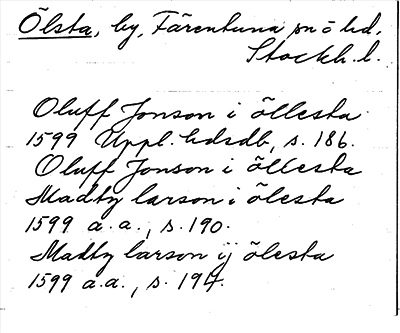 Ölsta, by, Färentuna sn o hd,
Stockh. l.
Oluff Jonson i öllesta
1599 Uppl. hdsdb, s. 186.
Oluff Jonson i öllesta
Madtz larson i ölesta
1599 a.a., s. 190.
Madtz larson ij ölesta
1599 a.a., s. 197.